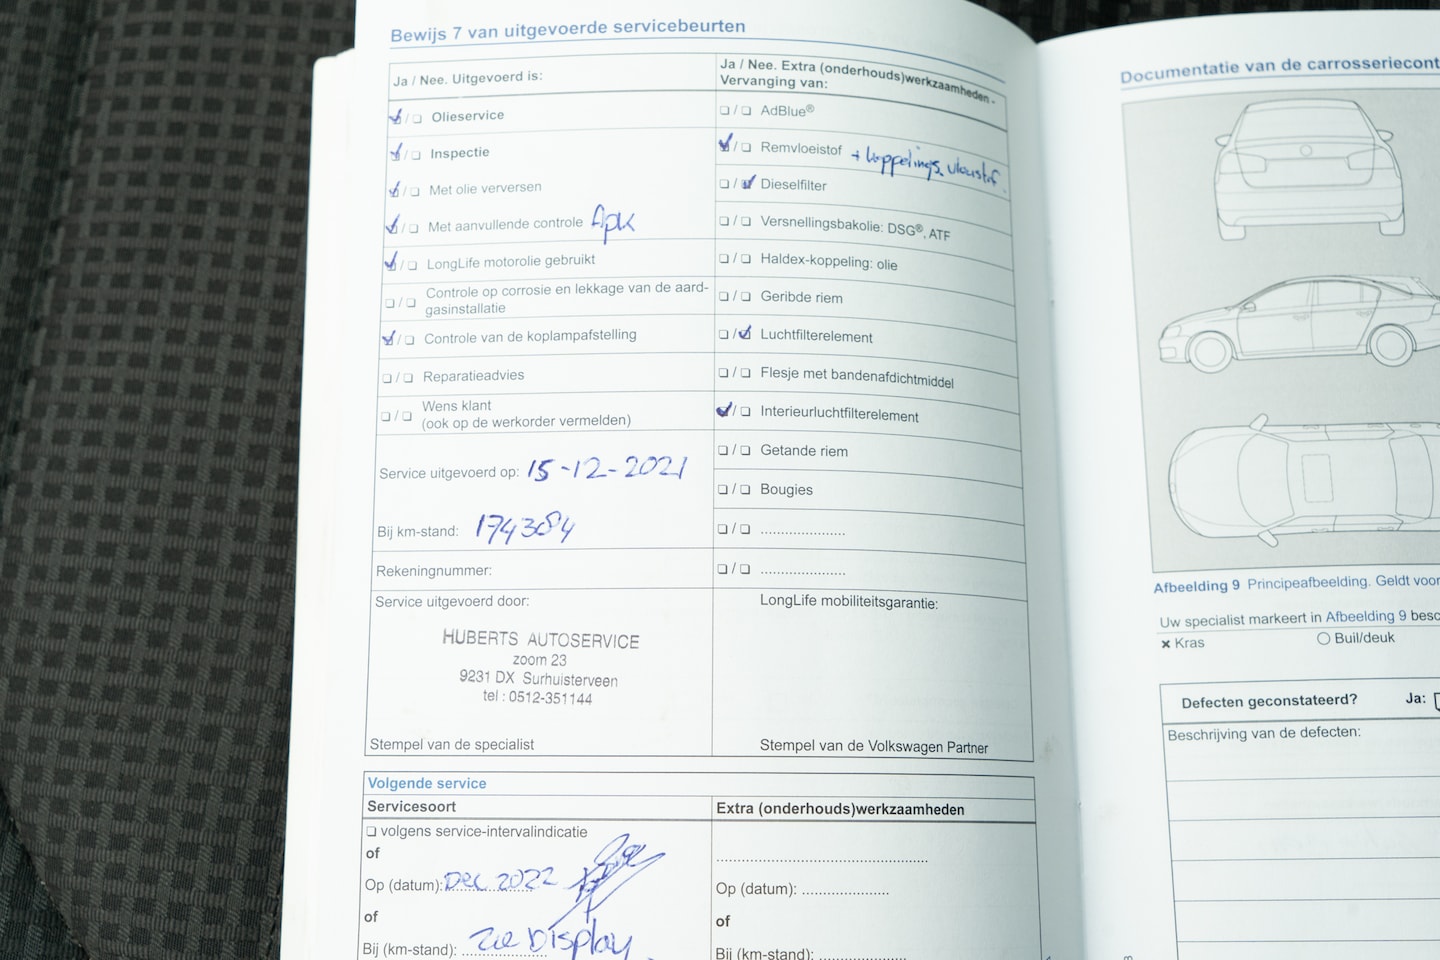 Bewijs 7 van uitgevoerde servicebeurten
Ja / Nee. Uitgevoerd is:
☑ / ☐ Olieservice
☑ / ☐ Inspectie
☑ / ☐ Met olie verversen
☑ / ☐ Met aanvullende controle Apk
☑ / ☐ LongLife motorolie gebruikt
☐ / ☐ Controle op corrosie en lekkage van de aard-
gasinstallatie
☑ / ☐ Controle van de koplampafstelling
☐ / ☐ Reparatieadvies
☐ / ☐ Wens klant
(ook op de werkorder vermelden)
Service uitgevoerd op: 15-12-2021
Bij km-stand: 174384
Rekeningnummer:
Service uitgevoerd door:
HUBERTS AUTOSERVICE
zoom 23
9231 DX Surhuisterveen
tel : 0512-351144
Stempel van de specialist
Ja / Nee. Extra (onderhouds)werkzaamheden -
Vervanging van:
☐ / ☐ AdBlue®
☑ / ☐ Remvloeistof + koppelings vloeistof.
☐ / ☑ Dieselfilter
☐ / ☐ Versnellingsbakolie: DSG®, ATF
☐ / ☐ Haldex-koppeling: olie
☐ / ☐ Geribde riem
☐ / ☑ Luchtfilterelement
☐ / ☐ Flesje met bandenafdichtmiddel
☑ / ☐ Interieurluchtfilterelement
☐ / ☐ Getande riem
☐ / ☐ Bougies
☐ / ☐ .....................
☐ / ☐ .....................
LongLife mobiliteitsgarantie:
Stempel van de Volkswagen Partner
Volgende service
Servicesoort
☐ volgens service-intervalindicatie
of
Op (datum): Dec 2022
of
Bij (km-stand): zie Display
Extra (onderhouds)werkzaamheden
.....................
Op (datum): .....................
of
Bij (km-stand): .....................
Documentatie van de carrosseriecont
Afbeelding 9 Principeafbeelding. Geldt voor
Uw specialist markeert in Afbeelding 9 besc
✖ Kras
○ Buil/deuk
Defecten geconstateerd? Ja: ☐
Beschrijving van de defecten: